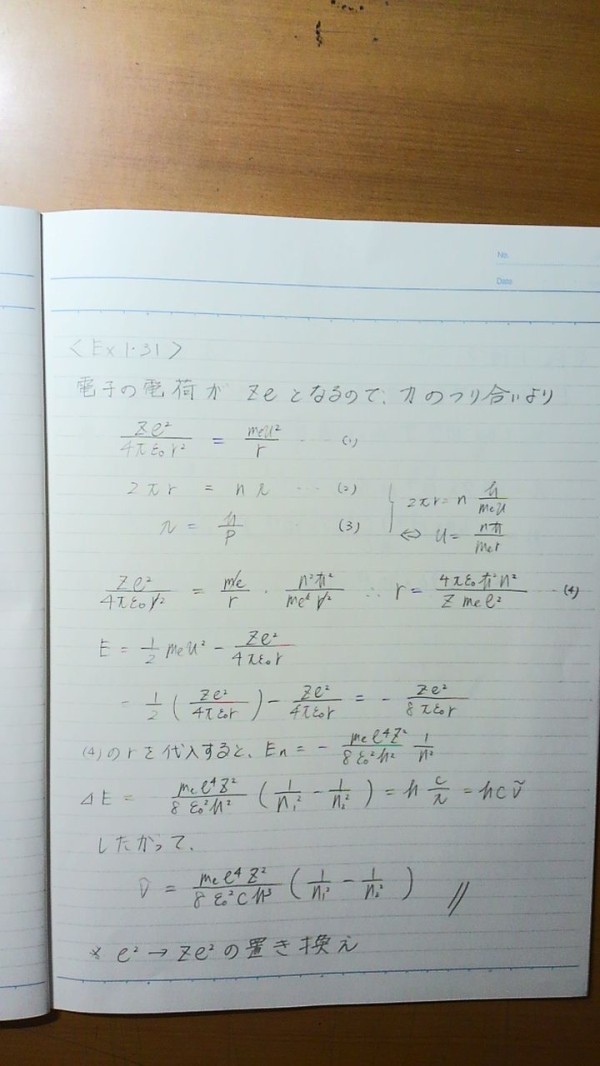 No.
Date
<Ex 1.31>
電子の電荷が Ze となるので、力のつり合いより
Ze²/4πε₀r² = meu²/r ... (1)
2πr = nλ ... (2)
λ = h/p (3)
2πr = n h/meu
⇔ u = nħ/mer
Ze²/4πε₀r² = me/r · n²ħ²/me²r² ∴ r = 4πε₀ħ²n²/Z mee² ... (4)
E = 1/2 meu² - Ze²/4πε₀r
= 1/2 (Ze²/4πε₀r) - Ze²/4πε₀r = - Ze²/8πε₀r
(4)のrを代入すると、En = - mee⁴Z²/8ε₀²h² 1/n²
ΔE = mee⁴Z²/8ε₀²h² (1/n₁² - 1/n₂²) = h c/λ = hcν̃
したがって、
ν̃ = mee⁴Z²/8ε₀²ch³ (1/n₁² - 1/n₂²) //
* e² → Ze² の置き換え